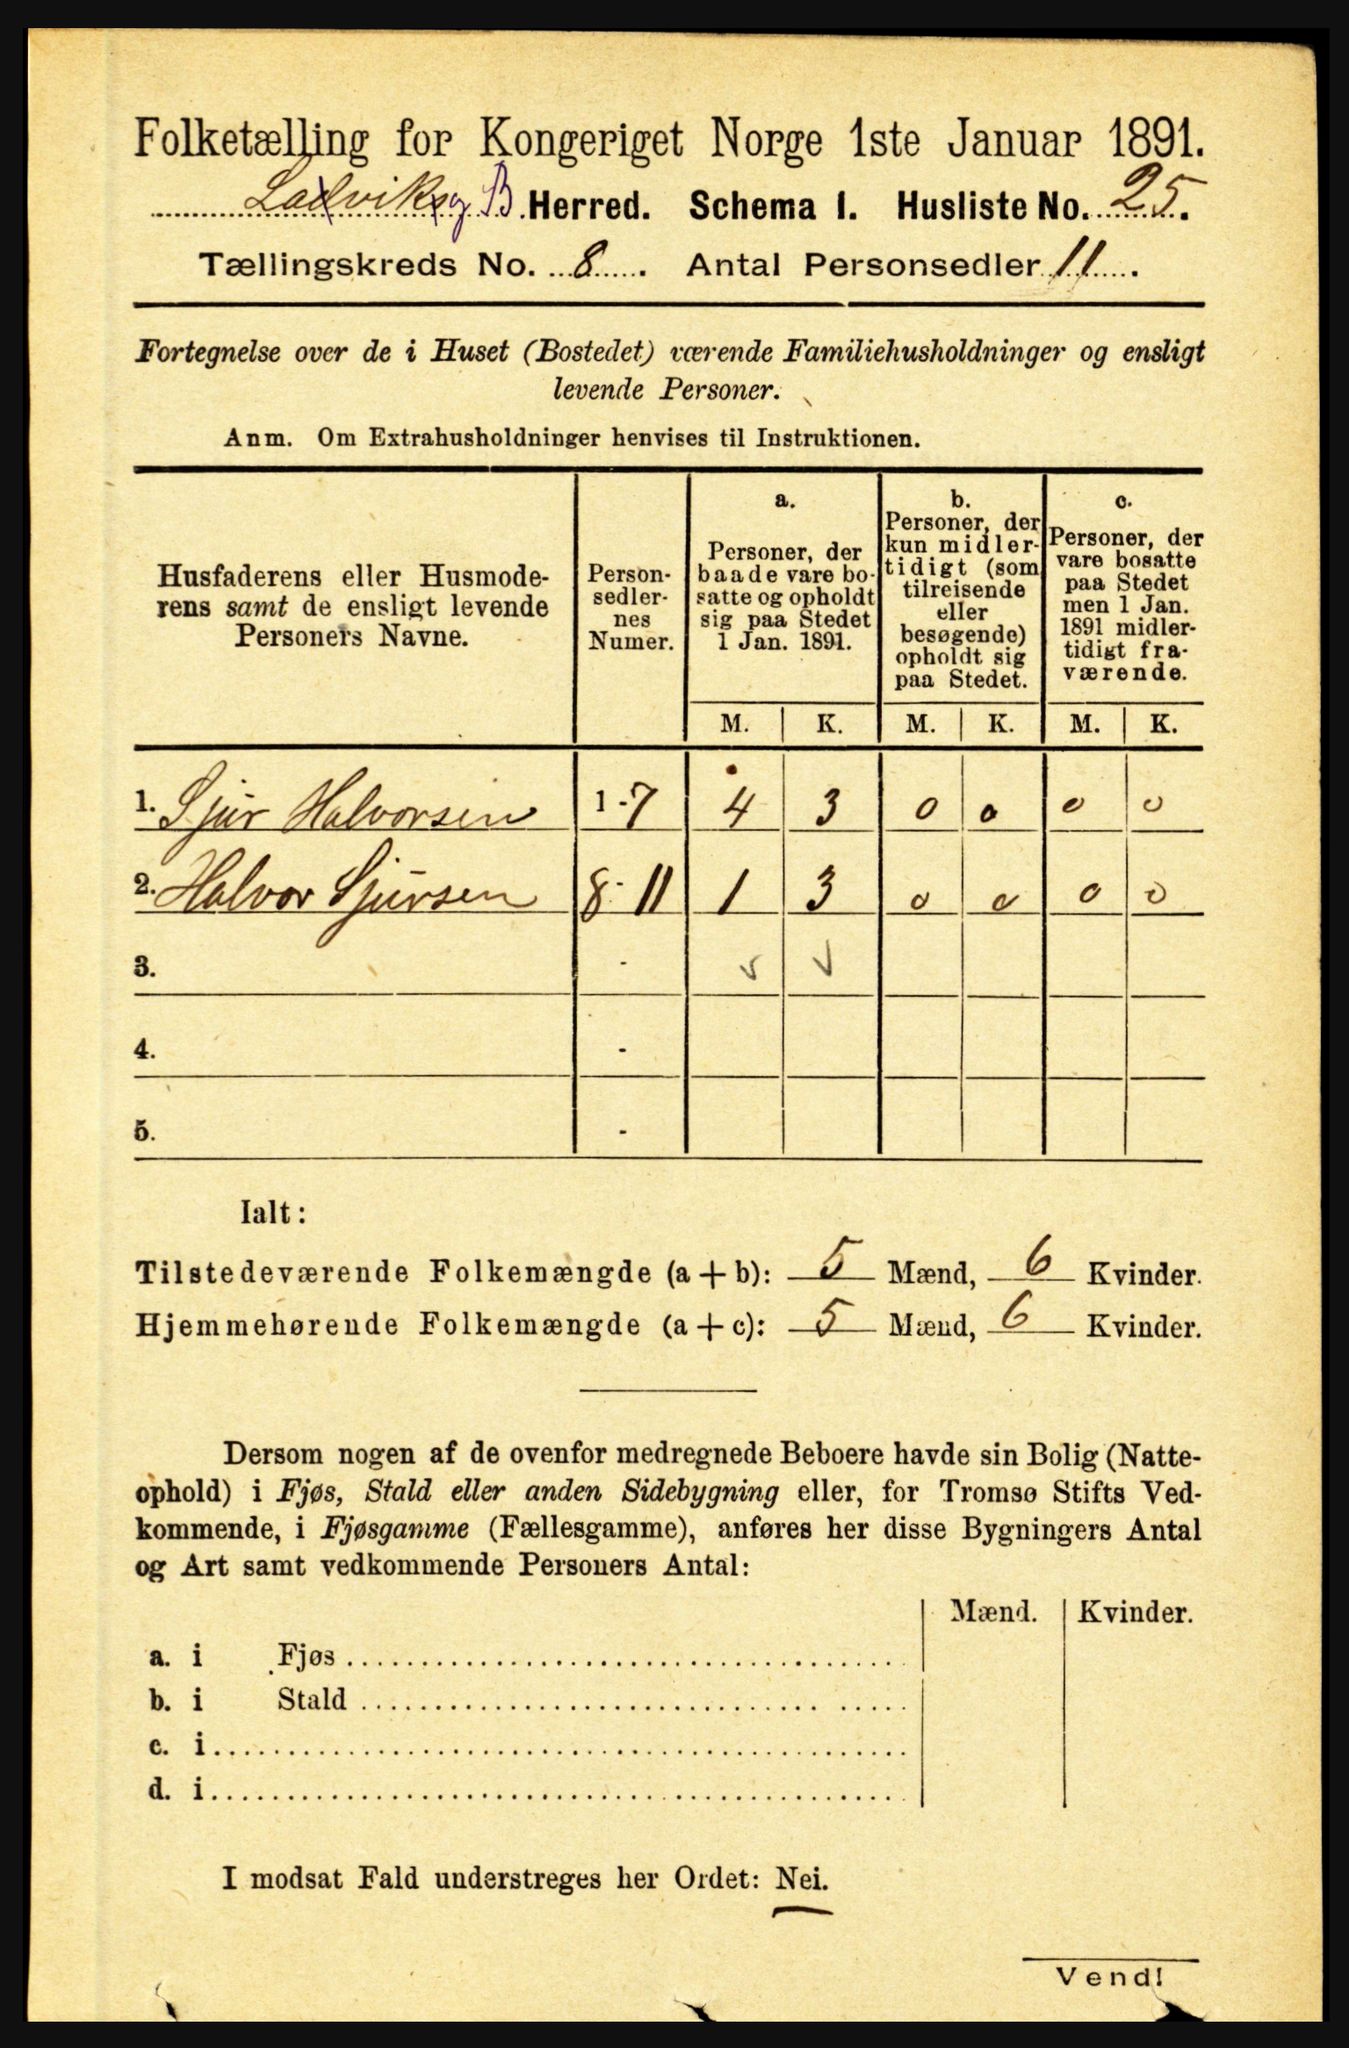 Folketælling for Kongeriget Norge 1ste Januar 1891.
Ladvik og B. Herred. Schema I. Husliste No. 25.
Tællingskreds No. 8. Antal Personsedler 11.
Fortegnelse over de i Huset (Bostedet) værende Familiehusholdninger og ensligt
levende Personer.
Anm. Om Extrahusholdninger henvises til Instruktionen.
Husfaderens eller Husmode-
rens samt de ensligt levende
Personers Navne.
Person-
sedler-
nes
Numer.
a.
Personer, der
baade vare bo-
satte og opholdt
sig paa Stedet
1 Jan. 1891.
b.
Personer, der
kun midler-
tidigt (som
tilreisende
eller
besøgende)
opholdt sig
paa Stedet.
c.
Personer, der
vare bosatte
paa Stedet
men 1 Jan.
1891 midler-
tidigt fra-
værende.
M. K. M. K. M. K.
1. Sjur Halvorsen 1-7 4 3 0 0 0 0
2. Halvor Sjursen 8-11 1 3 0 0 0 0
3. - ✓ ✓
4. -
5. -
Ialt:
Tilstedeværende Folkemængde (a + b): 5 Mænd, 6 Kvinder.
Hjemmehørende Folkemængde (a + c): 5 Mænd, 6 Kvinder.
Dersom nogen af de ovenfor medregnede Beboere havde sin Bolig (Natte-
ophold) i Fjøs, Stald eller anden Sidebygning eller, for Tromsø Stifts Ved-
kommende, i Fjøsgamme (Fællesgamme), anføres her disse Bygningers Antal
og Art samt vedkommende Personers Antal:
Mænd. Kvinder.
a. i Fjøs
b. i Stald
c. i
d. i
I modsat Fald understreges her Ordet: Nei.
Vend!